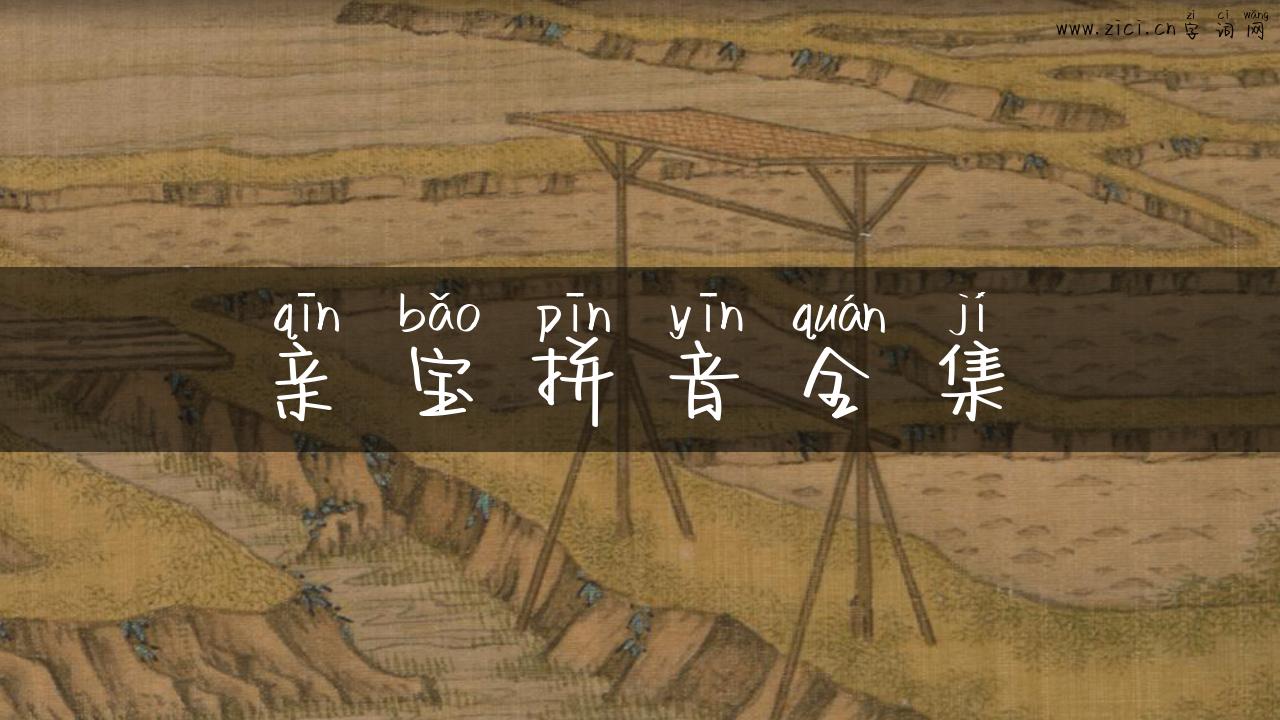 zì cí wǎng
www.zici.cn 字 词 网
qīn bǎo pīn yīn quán jí
亲 宝 拼 音 全 集